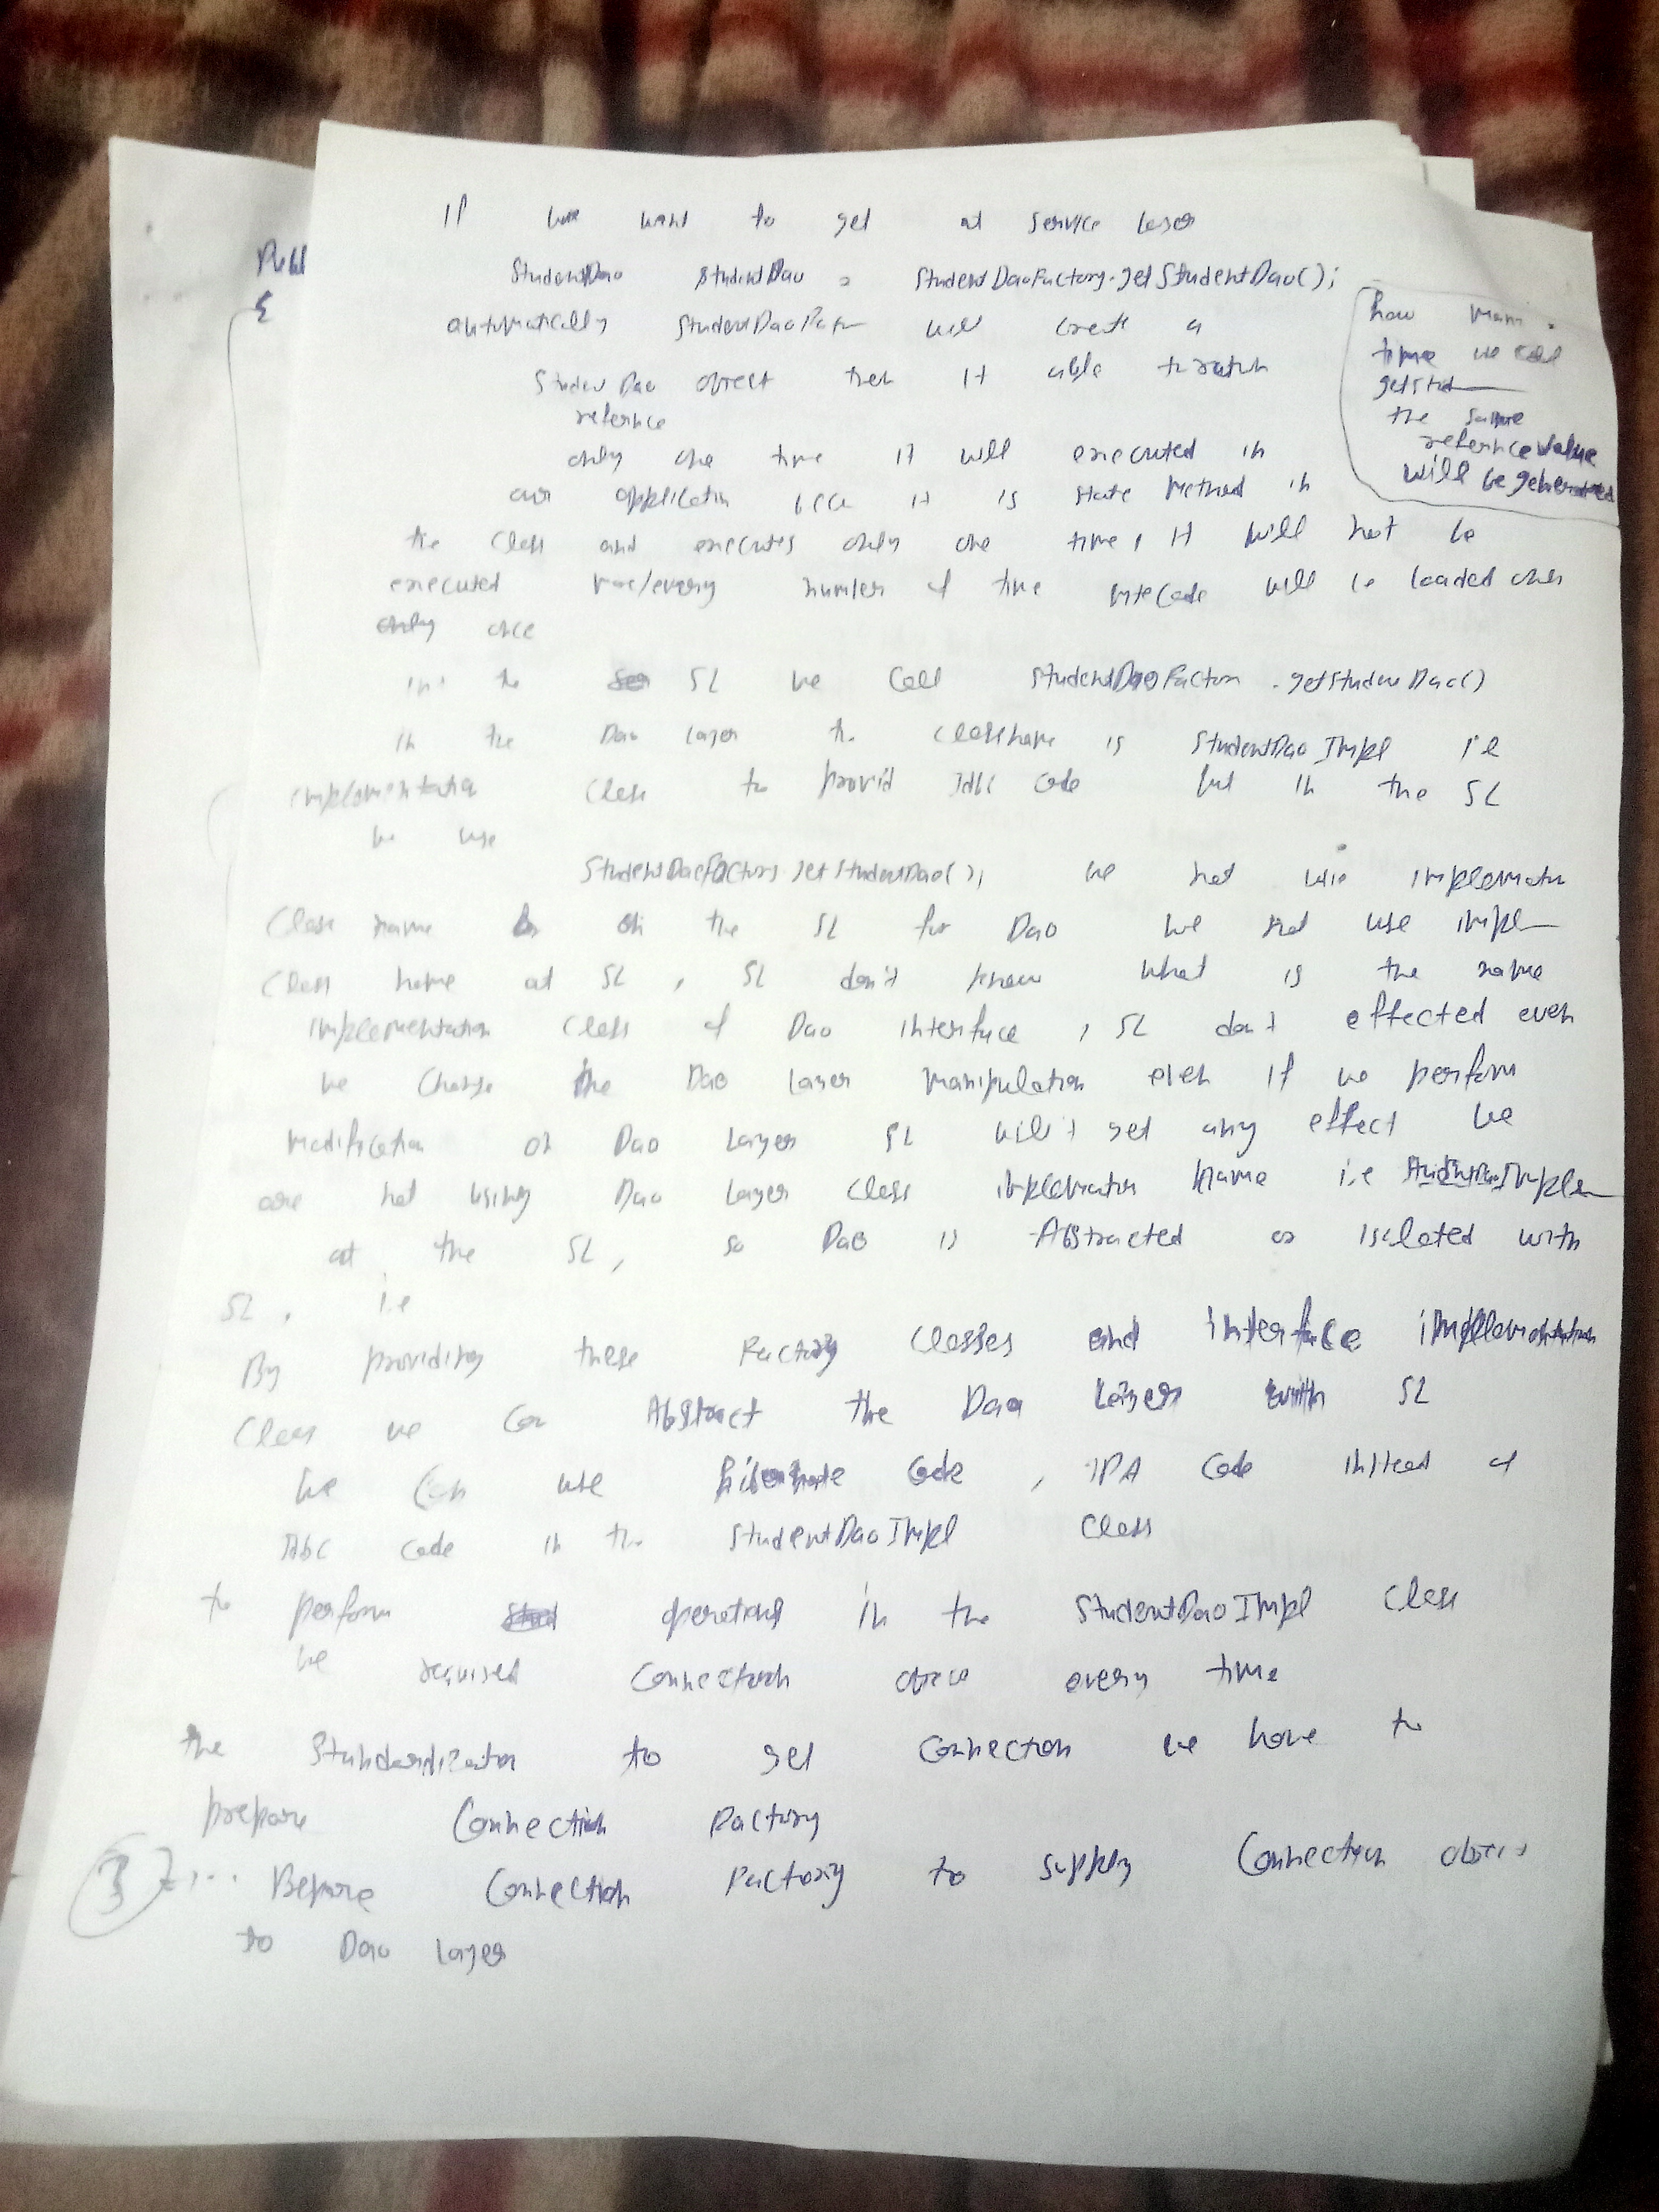 If we want to get at service layer
Publ
StudentDao studentDao = StudentDaoFactory.getStudentDao();
{
automatically StudentDaoFactor will create a
Student Dao object then it able to return
reference
how many
time we call
getStud
the same
reference value
will be generated
only one time it will executed in
our application it is static method in
the class and executes only one time, it will not be
executed every number of time byte code will be loaded
only once
in the SL we call StudentDaoFactory.getStudentDao()
in the Dao layer the classname is StudentDaoImpl i.e
implementation class to provid Jdbc code but in the SL
we use
StudentDaoFactory.getStudentDao(); we not use implementation
class name on the SL for Dao we not use impl
class name at SL, SL don't know what is the name
implementation class of Dao interface, SL don't effected even
we change the Dao layer manipulation even if we perform
modification on Dao layer SL will't get any effect we
are not using Dao layer class implementation name i.e StudentDaoImple
at the SL, so Dao is Abstracted or isolated with
SL, i.e
By providing these Factory classes and interface implementation
class we can Abstract the Dao layer with SL
we can use hibernate code, JPA code instead of
Jdbc code in the StudentDaoImpl class
to perform operations in the StudentDaoImpl class
we required connection object every time
the Standardization to get connection we have to
prepare Connection Factory
3 Connection Factory to supply Connection object
to Dao layer